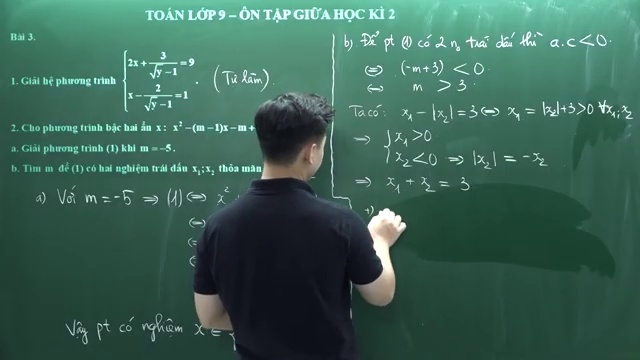 TOÁN LỚP 9 – ÔN TẬP GIỮA HỌC KÌ 2
Bài 3.
1. Giải hệ phương trình { 2x + 3/(√y − 1) = 9
x − 2/(√y − 1) = 1 . (Tự làm).
2. Cho phương trình bậc hai ẩn x : x² − (m − 1)x − m +
a. Giải phương trình (1) khi m = −5.
b. Tìm m để (1) có hai nghiệm trái dấu x₁; x₂ thỏa mãn
a) Với m = −5 ⇒ (1) ⇔ x²
⇔
Vậy pt có nghiệm x ∈ {
b) Để pt (1) có 2 n₀ trái dấu thì a.c < 0.
⇔ (−m+3) < 0.
⇔ m > 3.
Ta có: x₁ − |x₂| = 3 ⇔ x₁ = |x₂| + 3 > 0 ∀x₁; x₂
⇒ { x₁ > 0
x₂ < 0 ⇒ |x₂| = −x₂
⇒ x₁ + x₂ = 3
+)